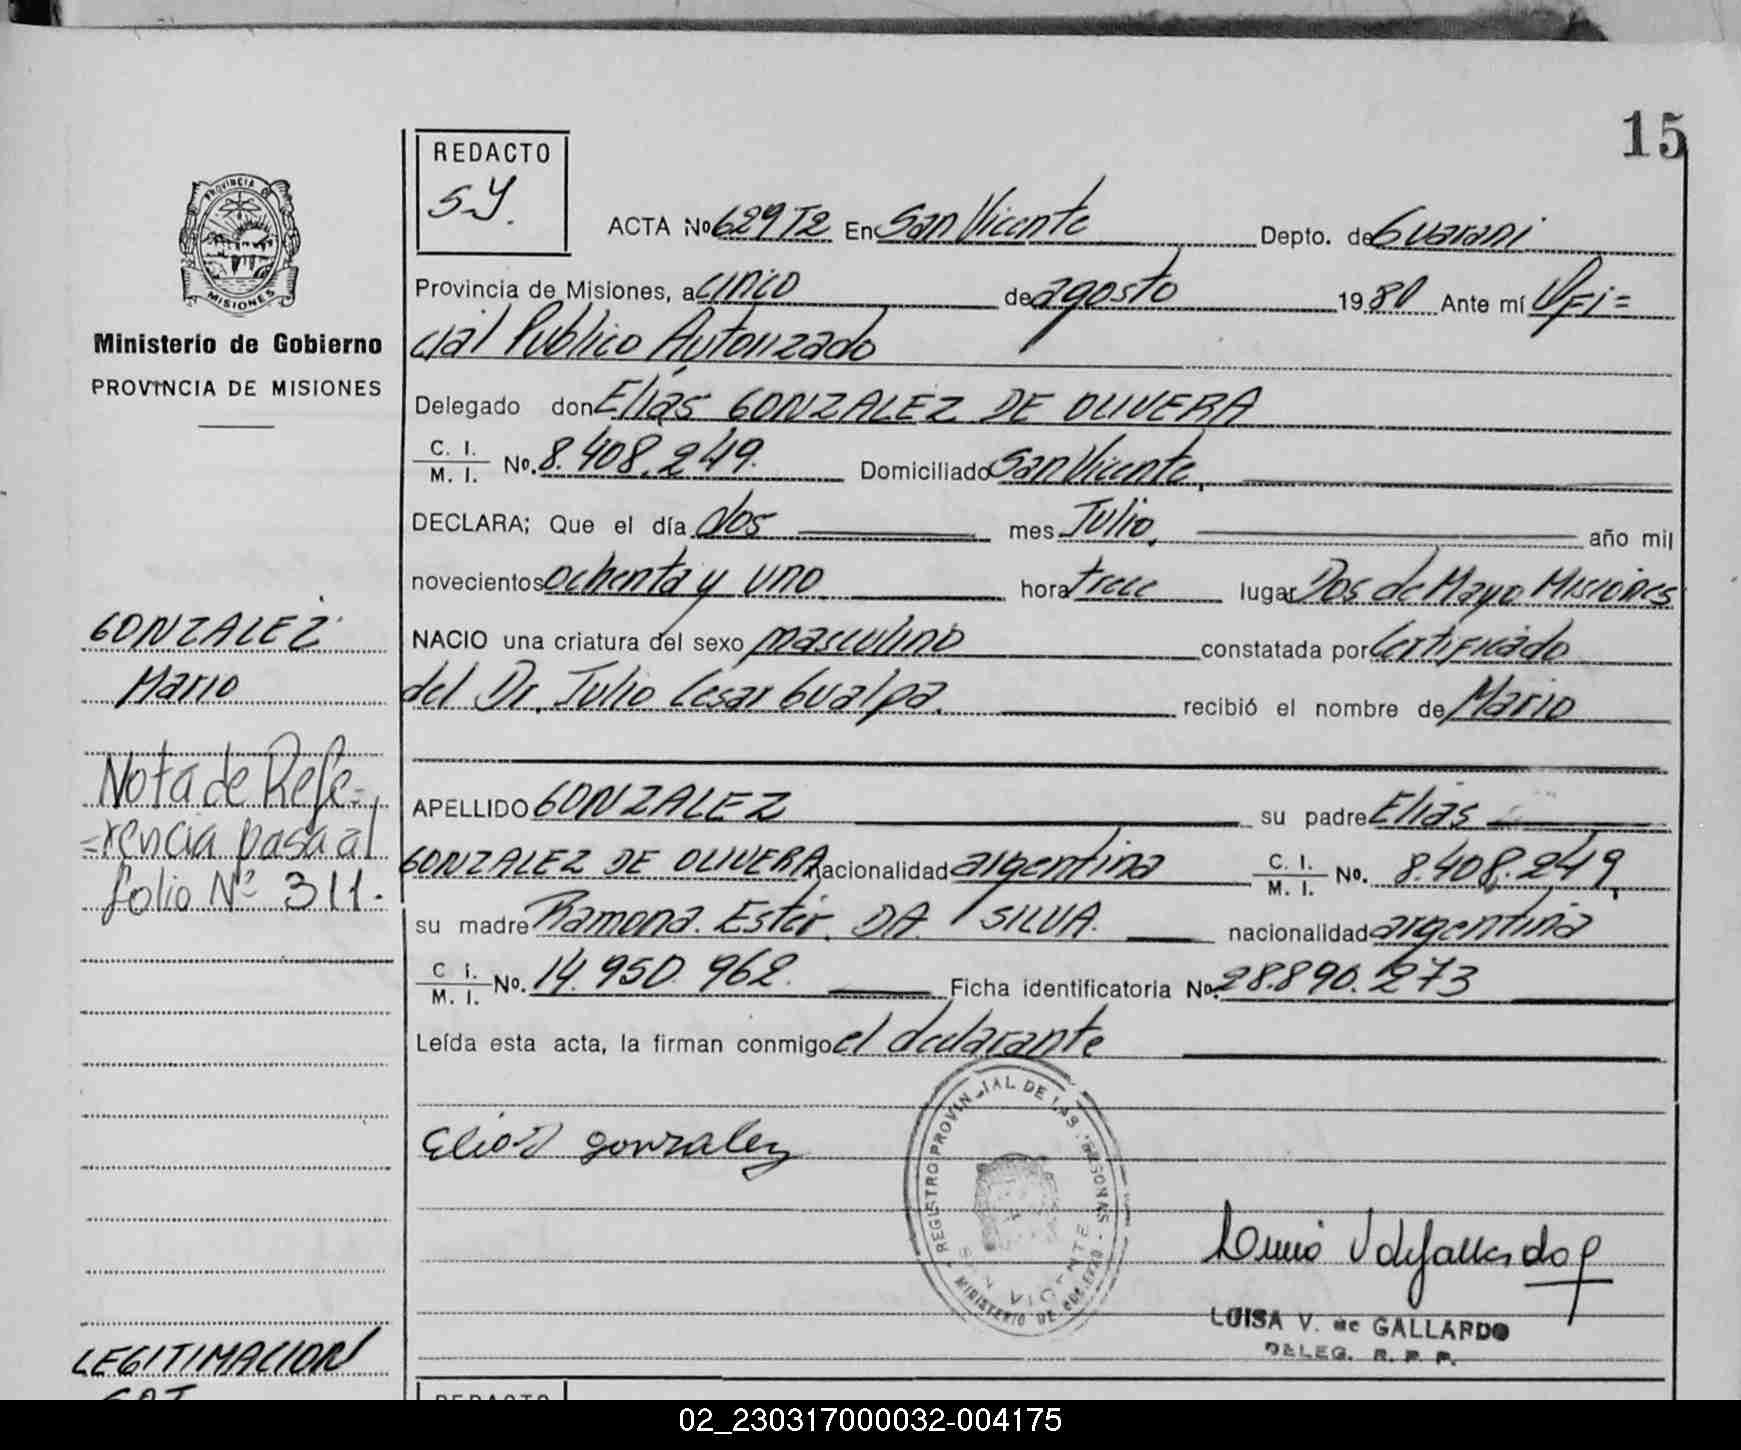 15
REDACTO
S.Y.
PROVINCIA DE
MISIONES
Ministerio de Gobierno
PROVINCIA DE MISIONES
ACTA No 629 T2 En San Vicente Depto. de Guarani
Provincia de Misiones, a cinco de agosto 1980 Ante mí Ofi=
cial Publico Autorizado
Delegado don Elias GONZALEZ DE OLIVERA
C. I. / M. I. No. 8.408.249. Domiciliado San Vicente,
DECLARA; Que el día dos mes Julio, año mil
novecientos ochenta y uno hora trece lugar Dos de Mayo Misiones
NACIO una criatura del sexo masculino constatada por Certificado
del Dr. Julio Cesar Gualpa. recibió el nombre de Mario
APELLIDO GONZALEZ su padre Elias
GONZALEZ DE OLIVERA nacionalidad argentina C. I. / M. I. No. 8.408.249,
su madre Ramona. Ester. DA SILVA. nacionalidad argentina
C. I. / M. I. No. 14.950.962. Ficha identificatoria No. 28.890.273
Leída esta acta, la firman conmigo el declarante
GONZALEZ
Mario
Nota de Refe-
=rencia pasa al
folio Nº 311.
Elias Gonzalez
REGISTRO PROVINCIAL DE LAS PERSONAS
SAN VICENTE
MINISTERIO DE GOBIERNO
LUISA V. de GALLARDO
DELEG. R. P. P.
LEGITIMACION
REDACTO
02_230317000032-004175